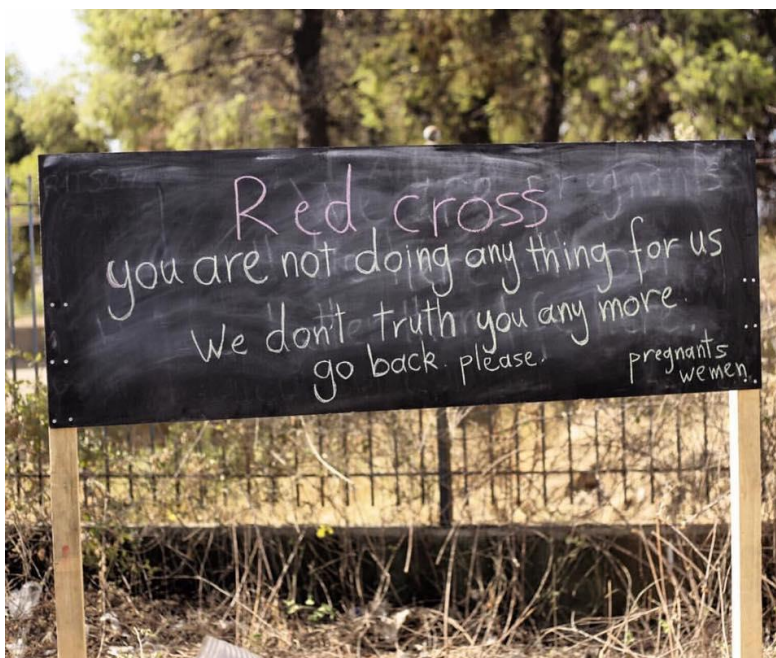 Red cross
you are not doing any thing for us
We don't truth you any more.
go back. please.
pregnants
wemen